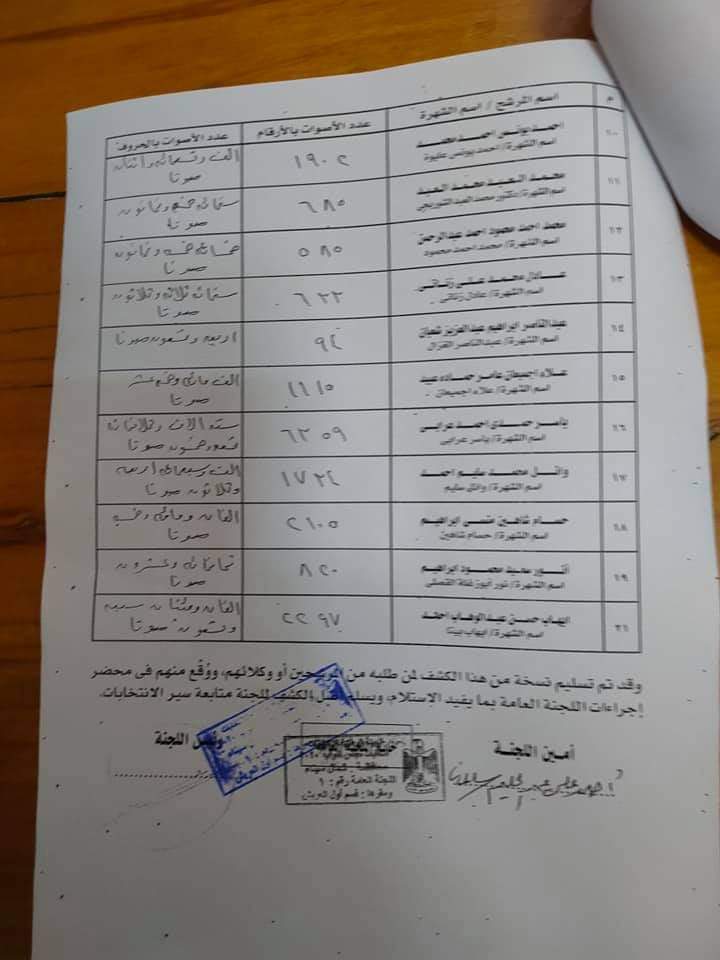 م
اسم المرشح / اسم الشهرة
عدد الأصوات بالأرقام
عدد الأصوات بالحروف
١٠
احمد يونس احمد محمد
اسم الشهرة/ احمد يونس عليوة
١٩٠٢
الف وتسعمائة واثنان
صوتا
١١
محمد السعيد محمد العبد
اسم الشهرة/ دكتور محمد العبد الشوربجي
٦٨٥
ستمائة خمسة وثمانون
صوتا
١٢
محمد احمد محمود احمد عبدالرحمن
اسم الشهرة/ محمد احمد محمود
٥٨٥
خمسمائة خمسة وثمانون
صوتا
١٣
عادل محمد على زناتى
اسم الشهرة/ عادل زناتى
٦٣٣
ستمائة ثلاثة وثلاثون
صوتا
١٤
عبدالناصر ابراهيم عبدالعزيز شعبان
اسم الشهرة/ عبدالناصر القزاز
٩٤
اربعة وتسعون صوتا
١٥
علاء اجميعان عامر حماده عيد
اسم الشهرة/ علاء اجميعان
١١١٥
الف مائة وخمسة عشر
صوتا
١٦
ياسر حمدى احمد عرابى
اسم الشهرة/ ياسر عرابى
٦٣٥٩
ستة الاف وثلاثمائة
تسعة وخمسون صوتا
١٧
وائل محمد سليم احمد
اسم الشهرة/ وائل سليم
١٧٣٤
الف وسبعمائة اربعة
وثلاثون صوتا
١٨
حسام شاهين منسى ابراهيم
اسم الشهرة/ حسام شاهين
٢١٠٥
الفان ومائة وخمسة
صوتا
١٩
أنور سعيد محمود ابراهيم
اسم الشهرة/
٨٢٠
ثمانمائة وعشرون
صوتا
٢١
ايهاب حسن عبدالوهاب احمد
اسم الشهرة/ ايهاب بيبتا
٢٢٩٧
الفان ومئتان سبعة
وتسعون صوتا
وقد تم تسليم نسخة من هذا الكشف لمن طلبه من المرشحين أو وكلائهم، ووُقّع منهم فى محضر
إجراءات اللجنة العامة بما يفيد الاستلام، ويسلم أصل الكشف للجنة متابعة سير الانتخابات.
أمين اللجنة
رئيس اللجنة
محافظة: شمال سيناء
اللجنة العامة رقم: ١
ومقرها: قسم أول العريش